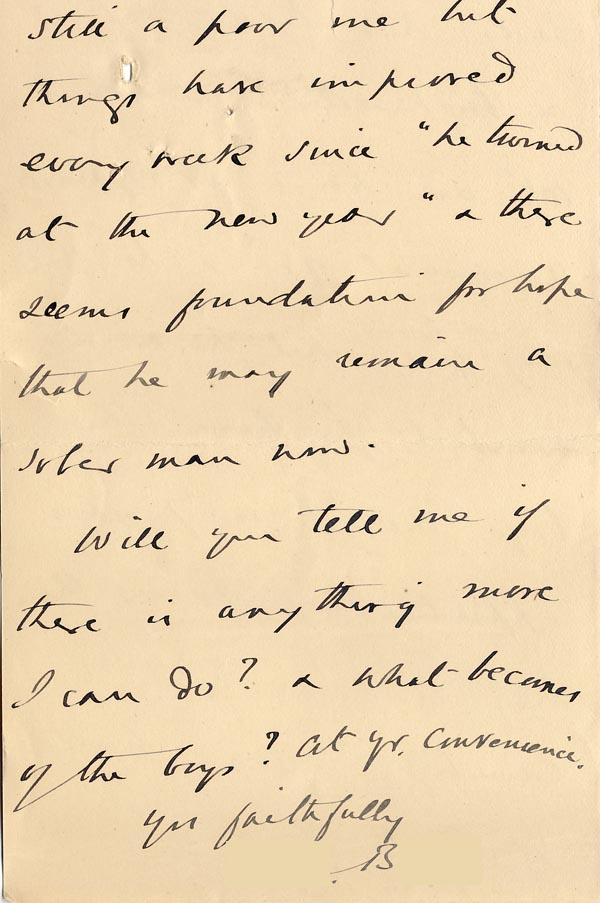 still a poor one but
things have improved
every week since "he turned
at the new year" & there
seems foundation for hope
that he may remain a
sober man now.
Will you tell me if
there is anything more
I can do? & what becomes
of the boys? At yr. convenience.
yrs faithfully
B